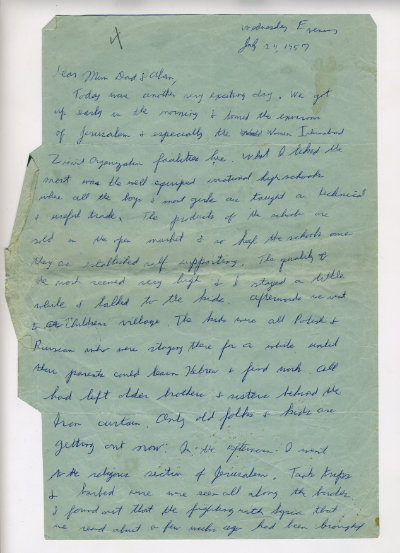 4
Wednesday Evening
July 24, 1957
Dear Mum Dad & Alan,
Today was another very exciting day. We got
up early in the morning & toured the environs
of Jerusalem & especially the Women International
Zionist Organization facilities here. What I liked the
most was the well equiped vocational high schools
where all the boys & most girls are taught a technical
& useful trade. The products of the schools are
sold in the open market & so half the schools are
they are self supporting. The quality of
the work seemed very high & I stayed a little
while & talked to the kids. Afterwards we went
to Childrens village. The kids were all Polish &
Russian who were staying there for a while until
their parents could learn Hebrew & find work. All
had left older brothers & sisters behind the
Iron curtain. Only old folks & kids are
getting out now. In the afternoon I went
to the religious section of Jerusalem. Tank traps
& barbed wire were seen all along the border.
I found out that the fighting with Syria that
we read about a few weeks ago had been brought